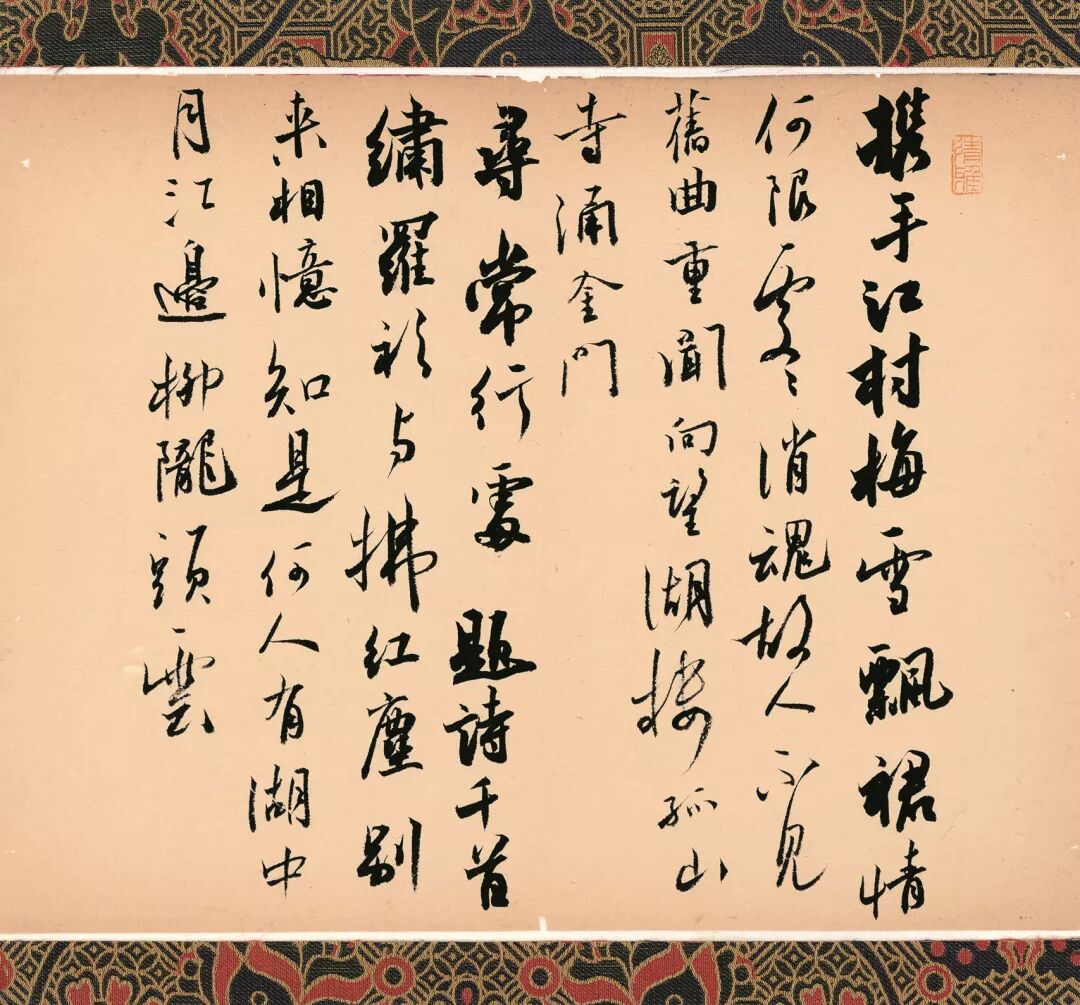 清雄
携手江村梅雪飄裙情
何限處々消魂故人不見
舊曲重聞向望湖樓孤山
寺涌金門
尋常行處題詩千首
繡羅衫与拂紅塵别
来相憶知是何人有湖中
月江邊柳隴頭雲